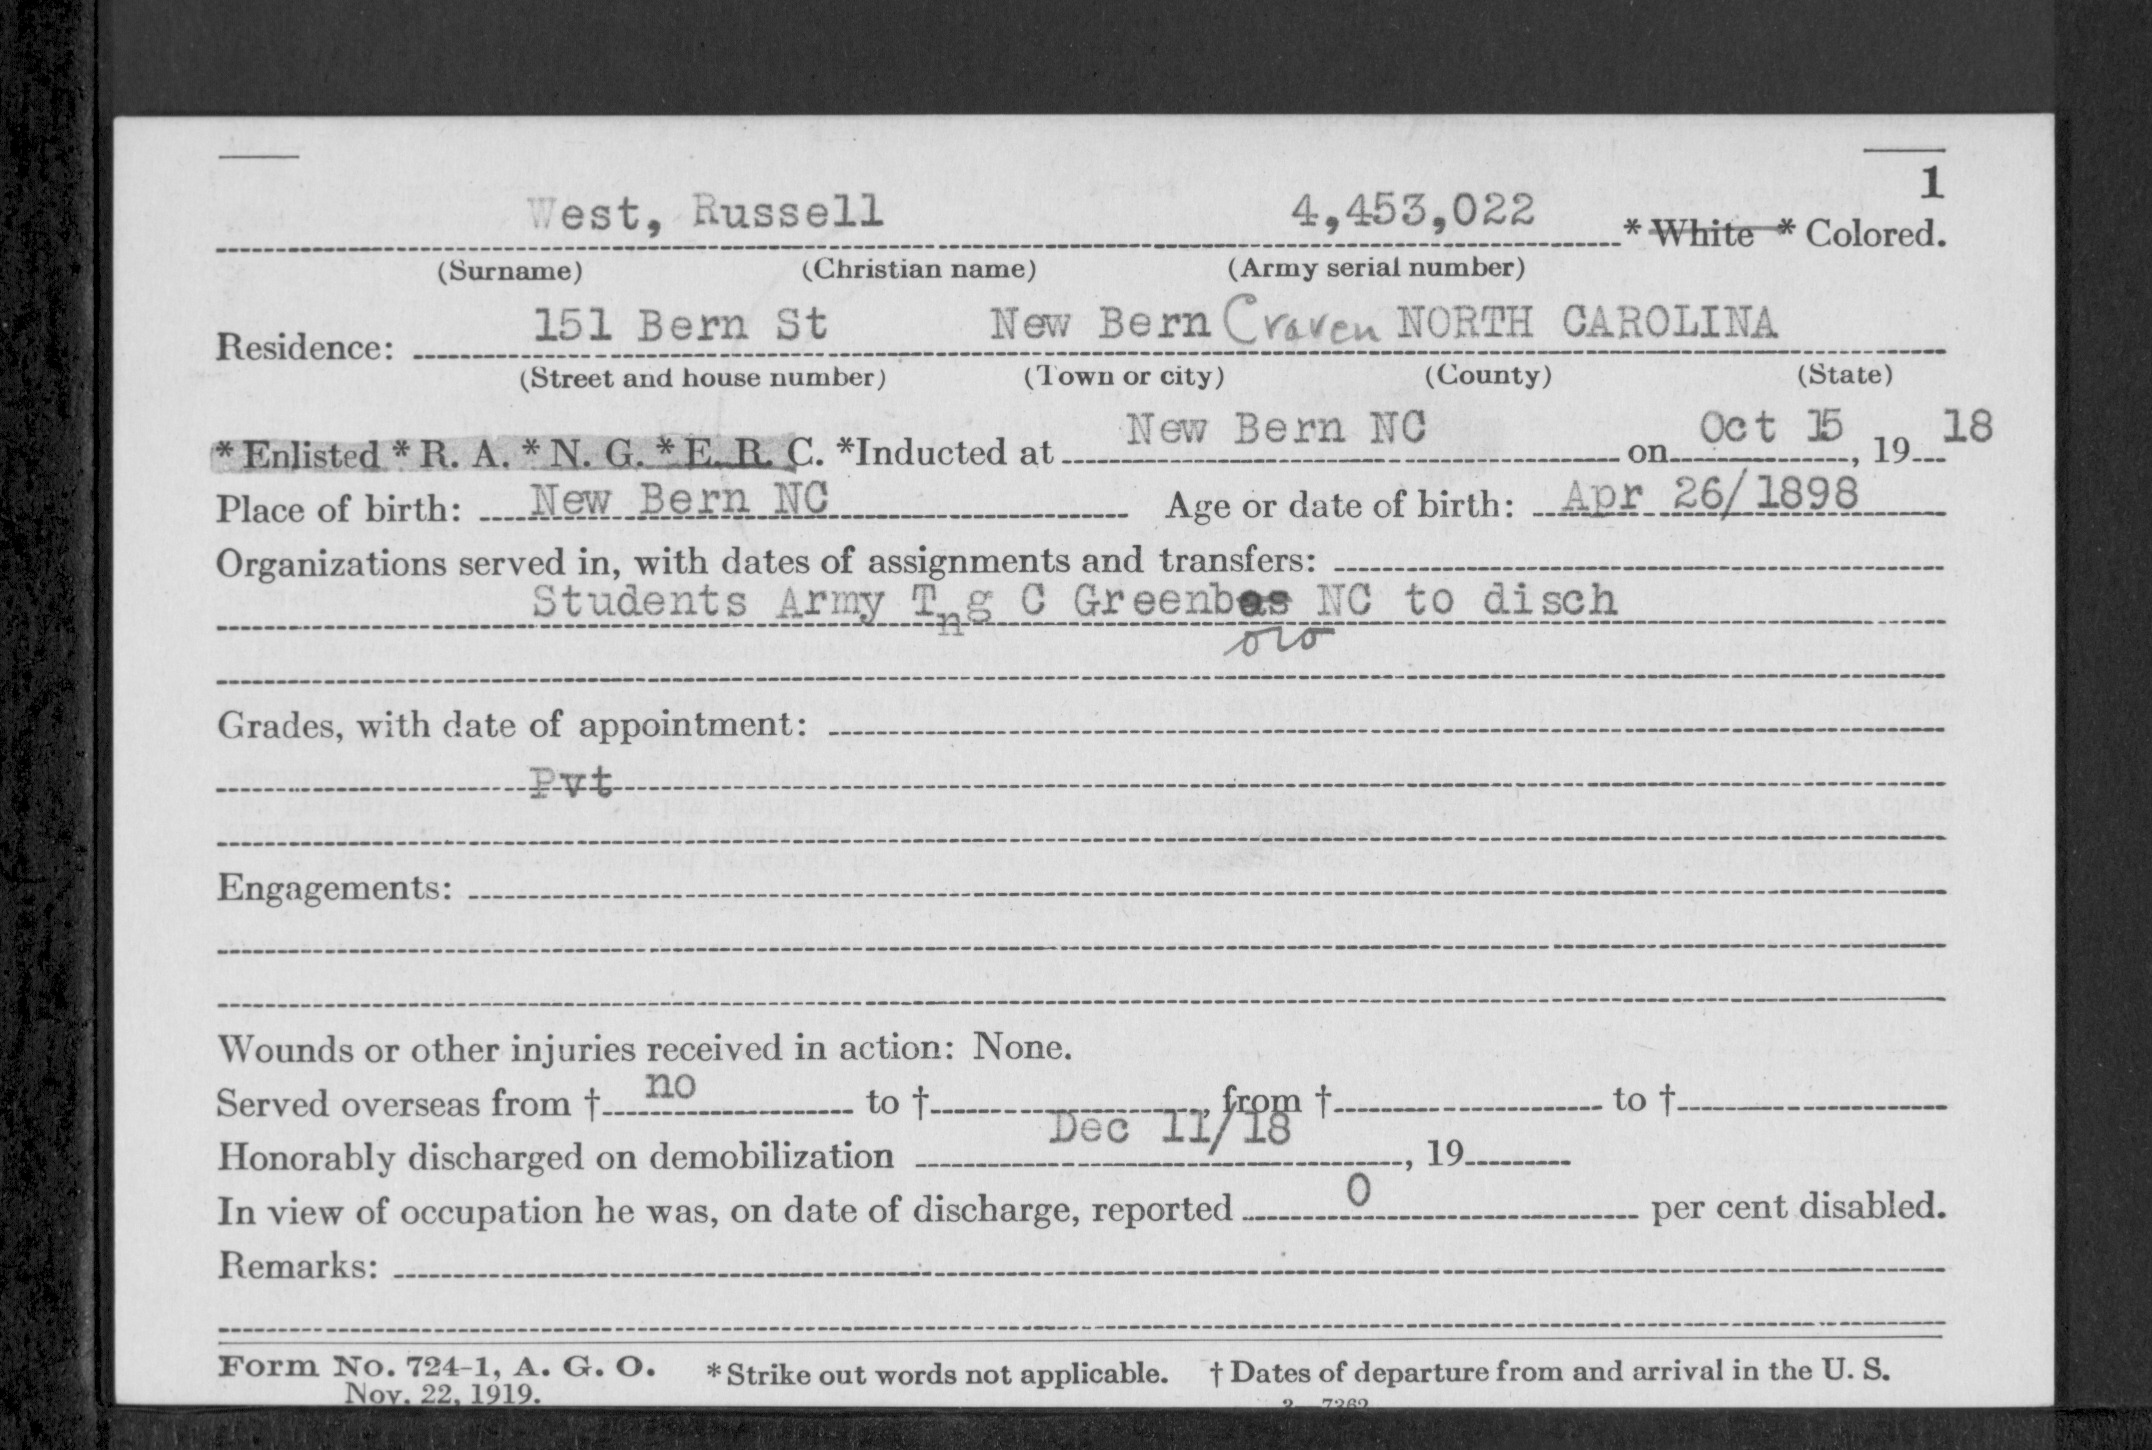 1
West, Russell 4,453,022 * White * Colored.
(Surname) (Christian name) (Army serial number)
Residence: 151 Bern St New Bern Craven NORTH CAROLINA
(Street and house number) (Town or city) (County) (State)
* Enlisted * R. A. * N. G. * E. R. C. *Inducted at New Bern NC on Oct 15, 19 18
Place of birth: New Bern NC Age or date of birth: Apr 26/1898
Organizations served in, with dates of assignments and transfers:
Students Army Tng C Greenbos NC to disch
oro
Grades, with date of appointment:
Pvt
Engagements:
Wounds or other injuries received in action: None.
Served overseas from † no to †, from † to †
Honorably discharged on demobilization Dec 11/18, 19
In view of occupation he was, on date of discharge, reported 0 per cent disabled.
Remarks:
Form No. 724-1, A. G. O. * Strike out words not applicable. † Dates of departure from and arrival in the U. S.
Nov. 22, 1919. 3—7262